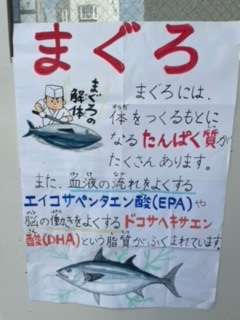 まぐろ
まぐろの解体
まぐろには、
体をつくるもとに
なるたんぱく質が
たくさんあります。
また、血液の流れをよくする
エイコサペンタエン酸(EPA)や
脳の働きをよくするドコサヘキサエン
酸(DHA)という脂質がふくまれています。